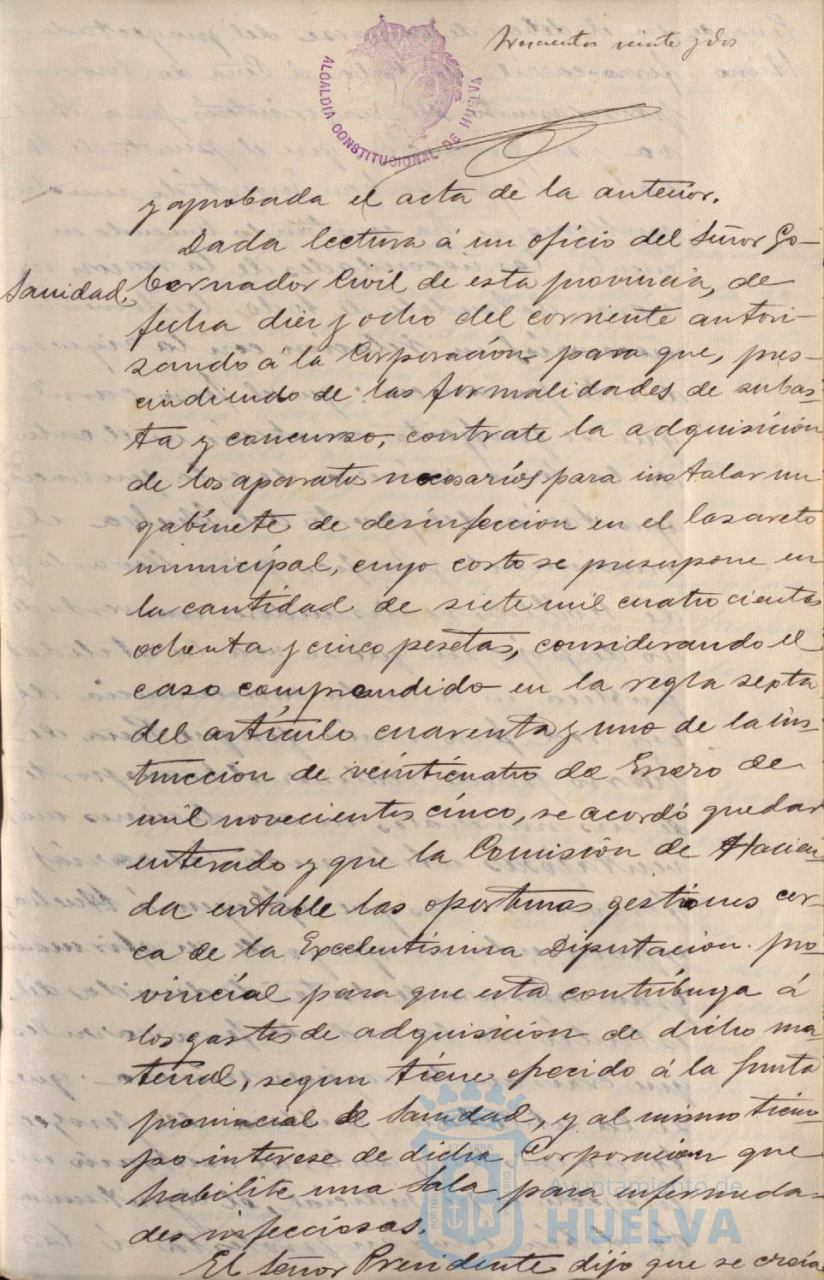 trescientos veinte y dos
ALCALDIA CONSTITUCIONAL DE HUELVA
y aprobada el acta de la anterior.
Dada lectura á un oficio del Señor Go-
Sanidad,
bernador Civil de esta provincia, de
fecha diez y ocho del corriente autori-
zando á la Corporación para que, pres-
cindiendo de las formalidades de subas-
ta y concurso, contrate la adquisición
de los aparatos necesarios para instalar un
gabinete de desinfeccion en el lasareto
municipal, cuyo costo se presupone en
la cantidad de siete mil cuatrocientas
ochenta y cinco pesetas, considerando el
caso comprendido en la regla septa
del artículo cuarenta y uno de la ins-
truccion de veinticuatro de Enero de
mil novecientos cinco, se acordó quedar
enterado y que la Comisión de Hacien-
da entable las oportunas gestiones cer-
ca de la Excelentísima Diputacion pro-
vincial para que esta contribuya á
los gastos de adquisicion de dicho ma-
terial, segun tiene ofrecido á la Junta
provincial de Sanidad, y al mismo tiem-
po interese de dicha Corporacion que
habilite una Sala para enfermeda-
des infecciosas.
El Señor Presidente dijo que se creía
Ayuntamiento de
HUELVA